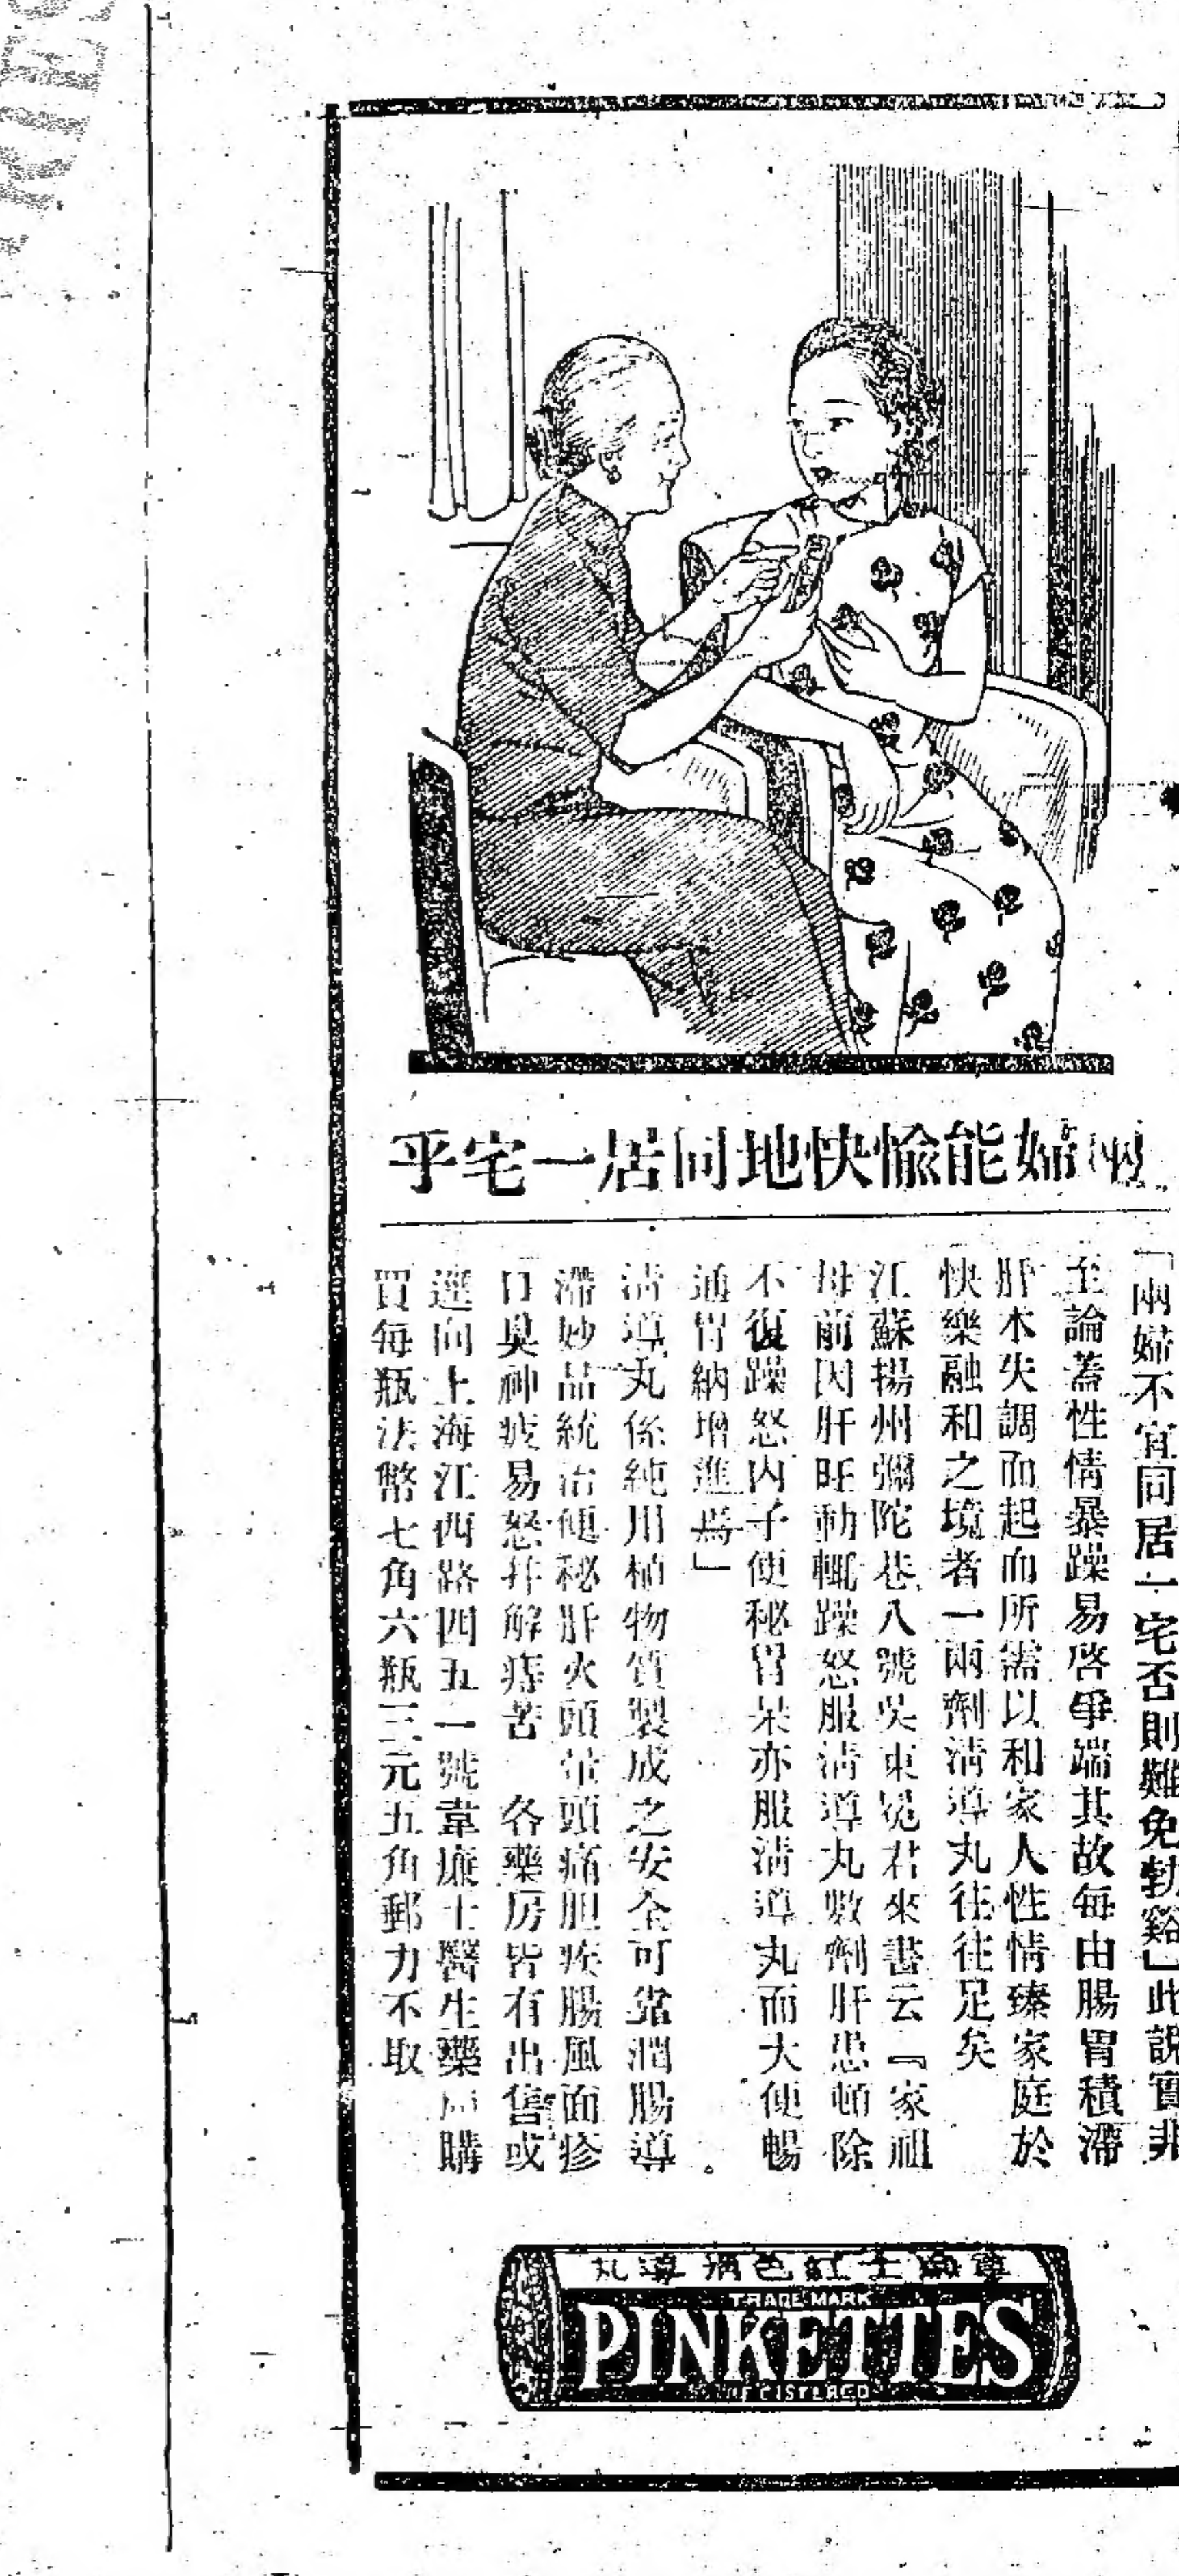 兩婦能愉快地同居一宅乎
「兩婦不宜同居一宅否則難免勃谿」此說實非
至論蓋性情暴躁易啓爭端其故每由腸胃積滯
肝木失調而起而所需以和家人性情臻家庭於
快樂融和之境者一兩劑淸導丸往往足矣
江蘇揚州彌陀巷八號吳東晃君來書云『家祖
母前因肝旺動輒躁怒服淸導丸數劑肝患頓除
不復躁怒內子便秘胃呆亦服淸導丸而大便暢
通胃納增進焉」
淸導丸係純用植物質製成之安全可靠潤腸導
滯妙品統治便秘肝火頭暈頭痛胆疾腸風面疹
口臭神疲易怒幷解痔苦 各藥房皆有出售或
逕向上海江西路四五一號韋廉士醫生藥局購
買每瓶法幣七角六瓶三元五角郵力不取
韋廉士紅色淸導丸
TRADE MARK
PINKETTES